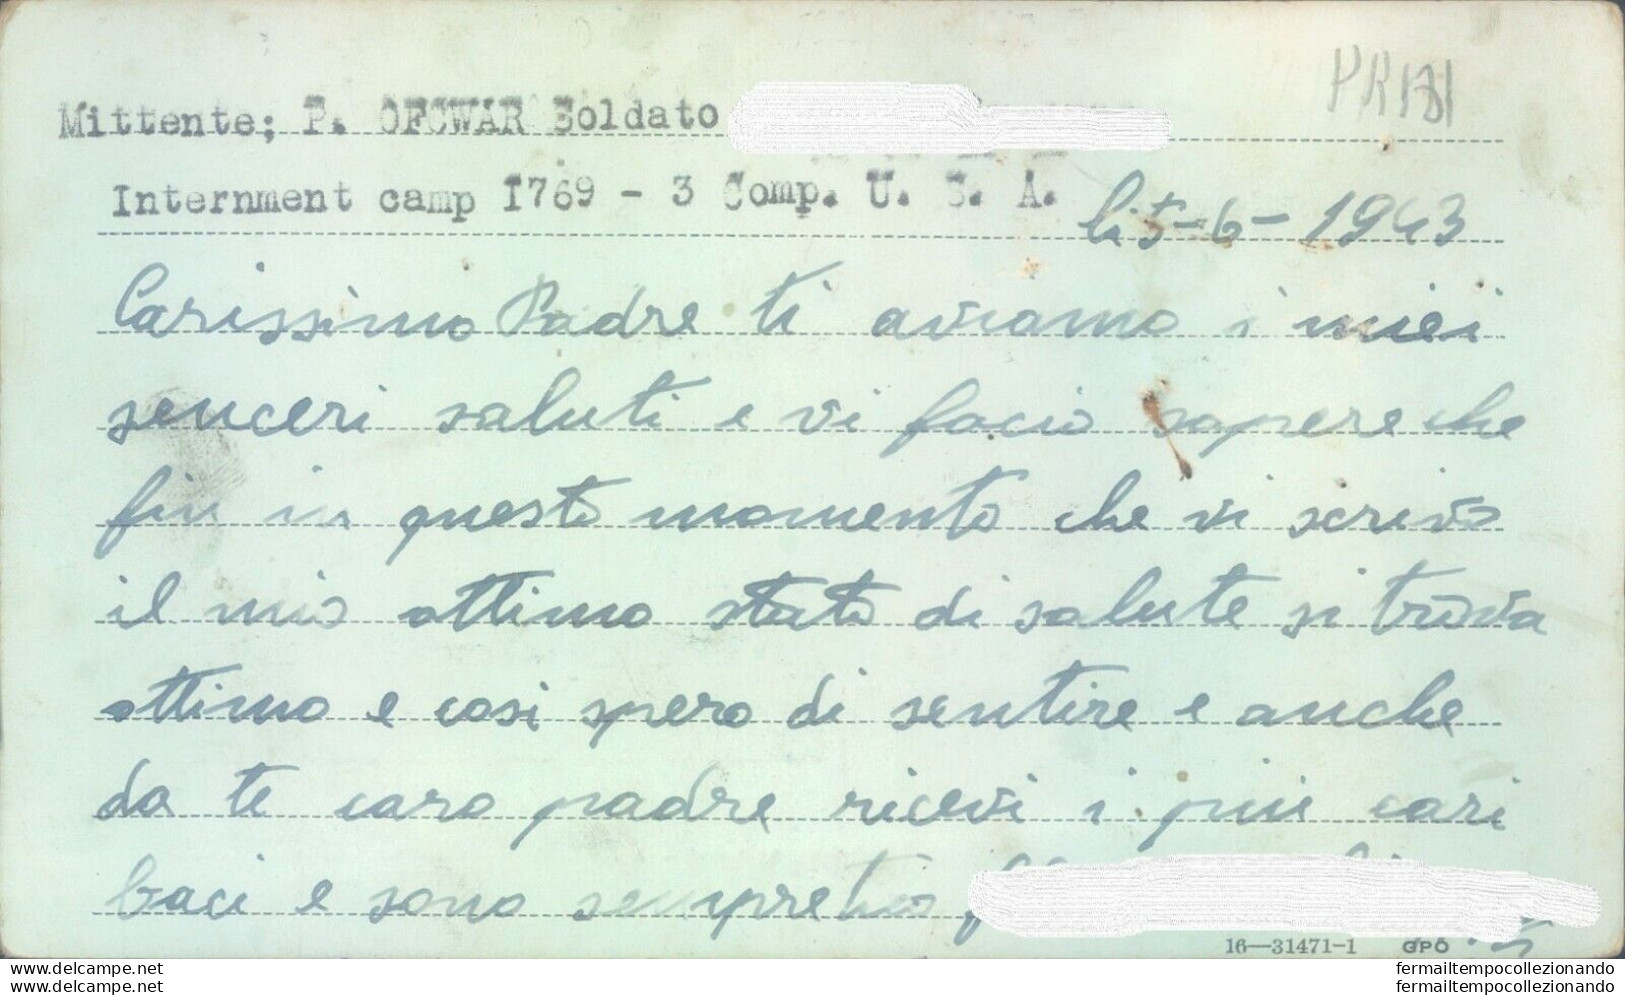 PR181
Mittente; P. OFCWAR Soldato
Internment camp I769 - 3 Comp. U. S. A.
li 5-6-1943
Carissimo Padre ti aviamo i miei
senceri saluti e vi facio sapere che
fin in questo momento che vi scrivo
il mio ottimo stato di salute si trova
ottimo e cosi spero di sentire e anche
da te caro padre ricevi i piu cari
baci e sono sempre tuo
16—31471-1 GPO
www.delcampe.net
www.delcampe.net
fermailtempocollezionando
fermailtempocollezionando